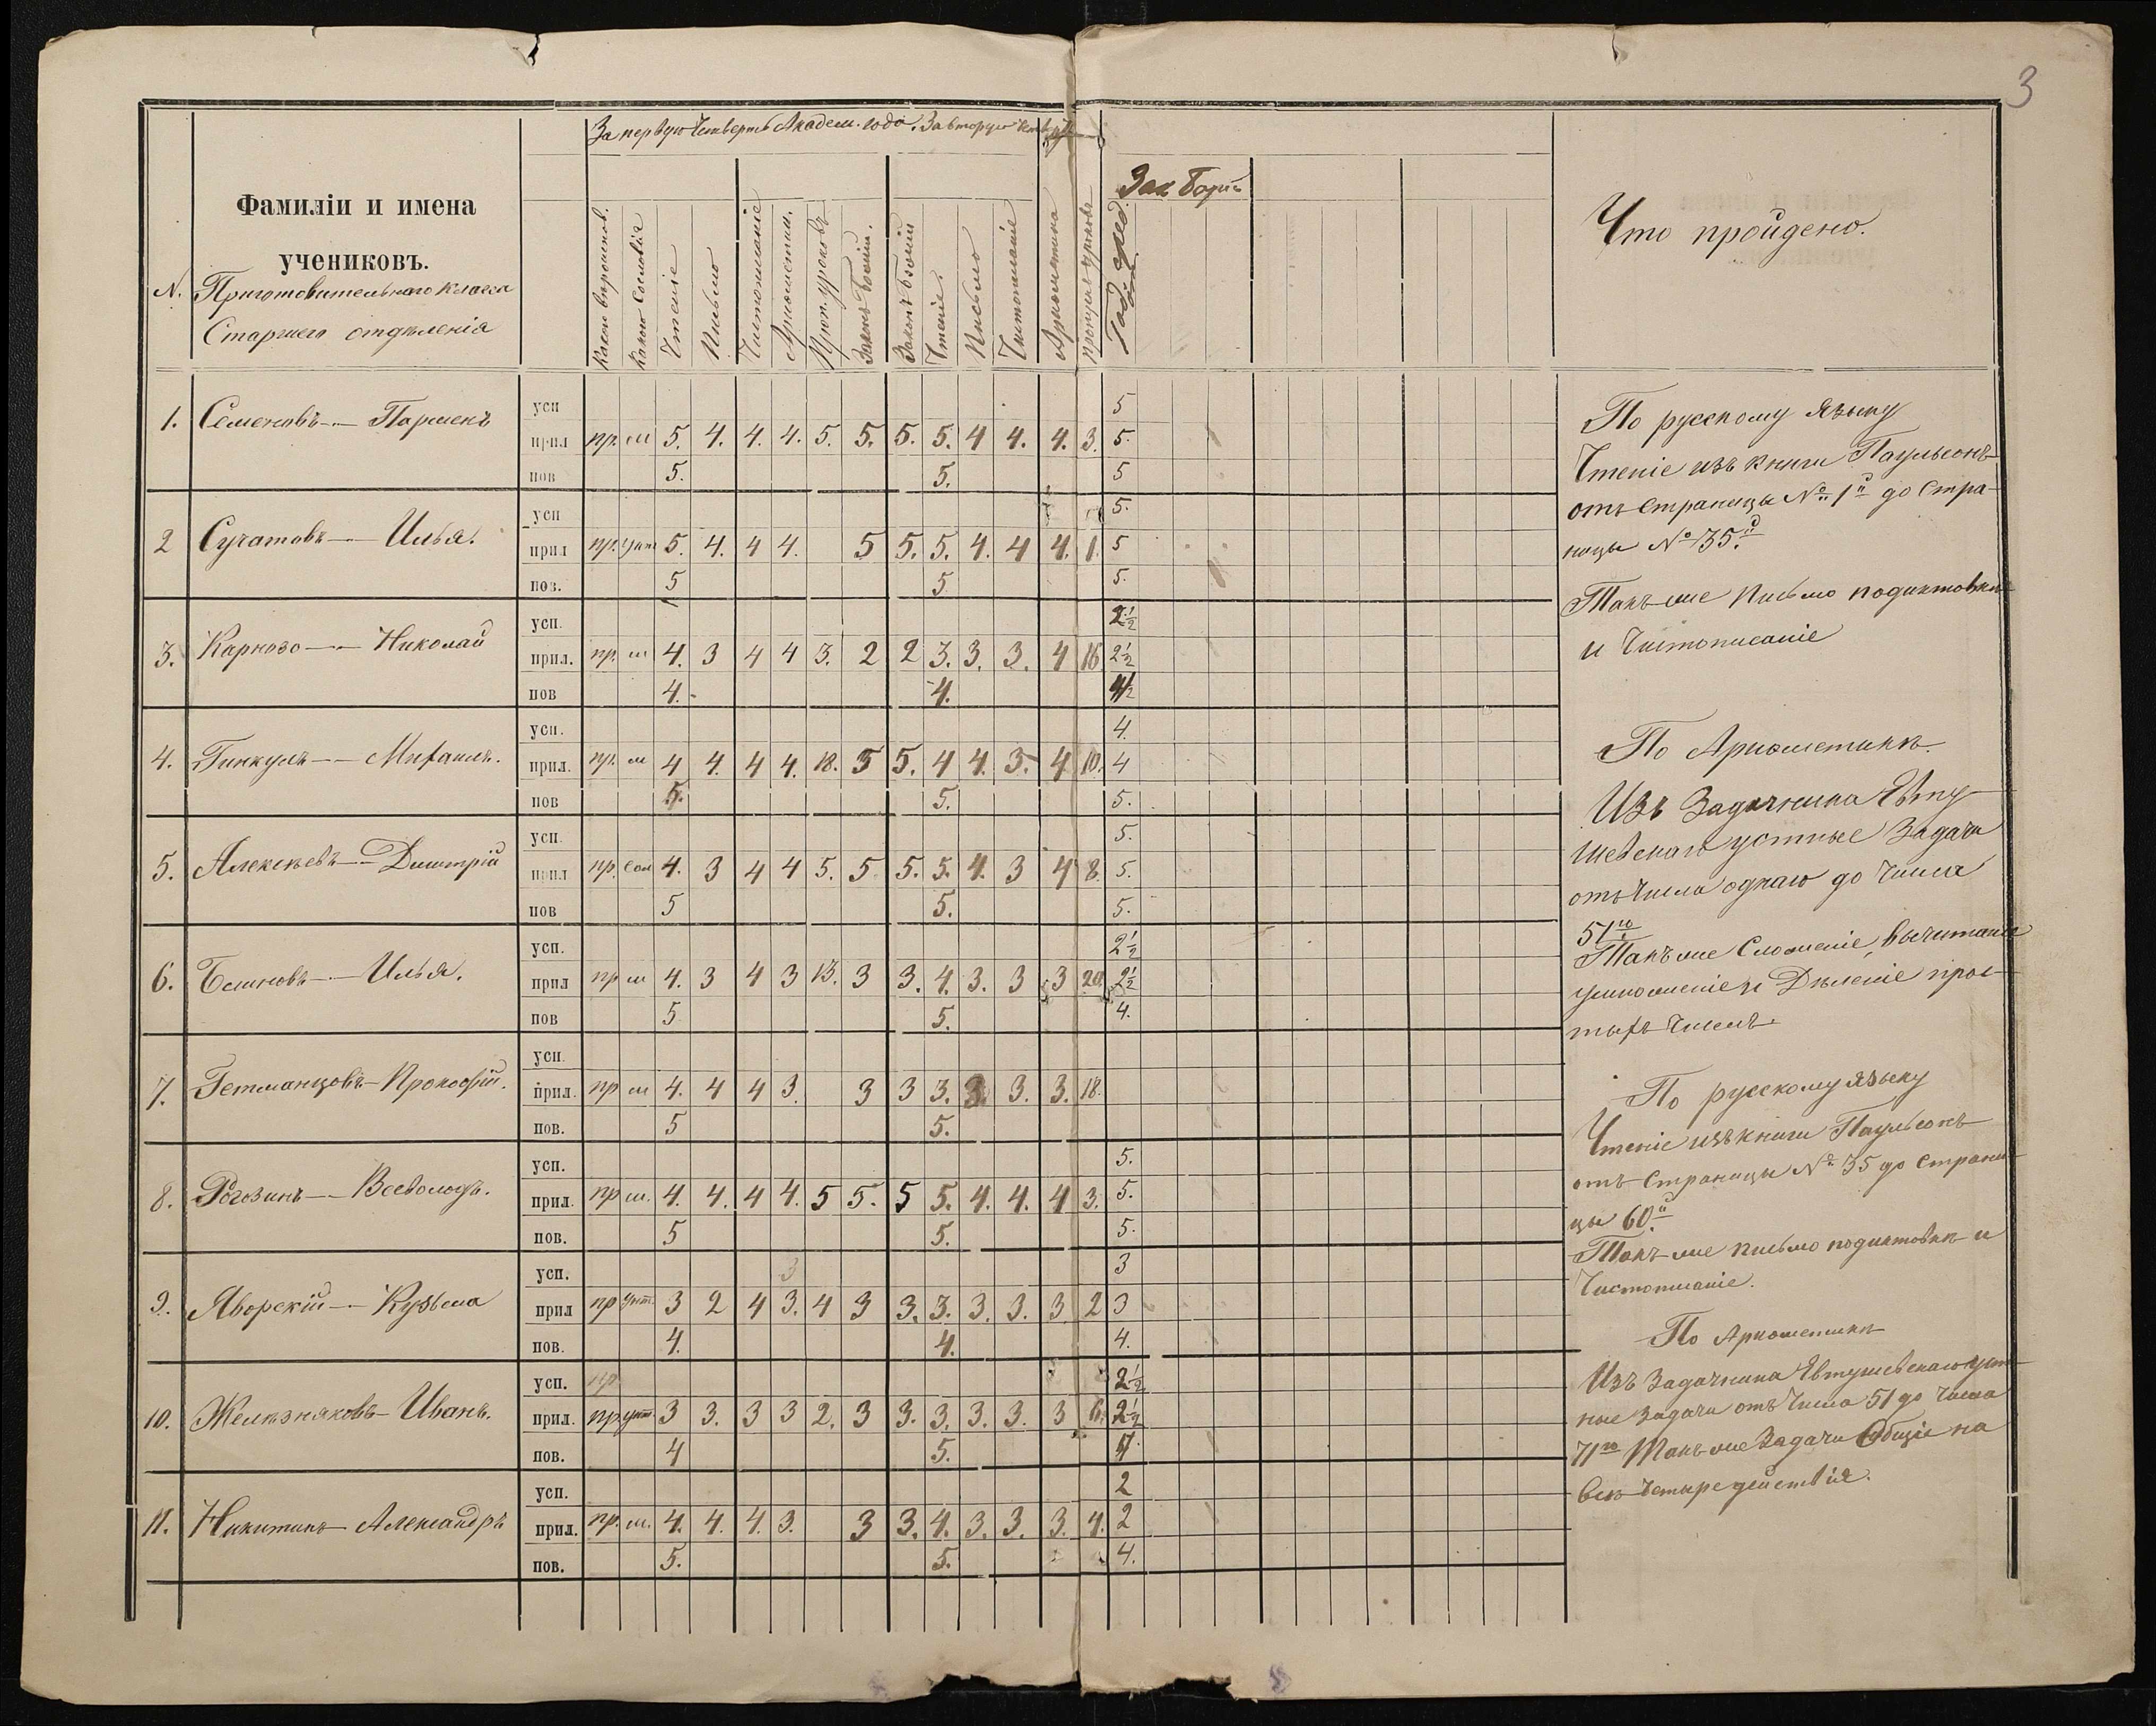 3
За первую Четверть Академ. года. За вторую
Зак Божій
Фамиліи и имена
учениковъ.
№.
Приготовительнаго класса
Старшего отдѣленія
Какого вѣроисповѣд.
Какого Сословія
Чтеніе
Письмо
Чистописаніе
Ариѳметик.
Проп. уроковъ
Законъ Божій.
Законъ Божій
Чтеніе.
Письмо
Чистописаніе
Ариѳметика
Пропущен. уроковъ
Что пройдено.
1. Семеновъ — Пармень
усп 5
прил пр. м 5. 4. 4. 4. 5. 5. 5. 5. 4 4. 4. 3. 5.
пов 5. 5. 5
2 Сучатовъ — Илья.
усп 5.
прил пр. унт 5. 4. 4 4. 5 5. 5. 4. 4 4. 1. 5
пов. 5 5 5.
3. Карнозо — Николай
усп. 2½
прил. пр. м 4. 3 4 4 3. 2 2 3. 3. 3. 4 16 2½
пов 4. 4. 4½
4. Гинкулъ — Михаилъ.
усп. 4.
прил. пр. м 4 4. 4 4. 18. 5 5. 4 4. 3. 4 10. 4
пов 5. 5. 5.
5. Алексѣевъ — Дмитрій
усп. 5.
прил пр. сол 4. 3 4 4 5. 5 5. 5. 4. 3 4 8. 5.
пов 5 5. 5.
6. Блиновъ — Илья.
усп. 2½
прил пр м 4. 3 4 3 13. 3 3. 4. 3. 3 3 20 2½
пов 5 5. 4.
7. Гетманцовъ — Прокофій.
усп.
прил. пр м 4. 4 4 3. 3 3 3. 3. 3. 3. 18.
пов. 5 5.
8. Рогозинъ — Всеволодъ.
усп. 5.
прил. пр м. 4. 4. 4 4. 5 5. 5 5. 4. 4. 4 3. 5.
пов. 5 5. 5.
9. Яворскій — Кузьма
усп. 3 3
прил пр унт. 3 2 4 3. 4 3 3. 3. 3. 3. 3 2 3
пов. 4. 4. 4.
10. Желѣзняковъ — Иванъ.
усп. пр 2½
прил. пр. унт. 3 3. 3 3 2. 3 3. 3. 3. 3. 3 6. 2½
пов. 4 5.
11. Никитинъ — Александръ
усп. 2
прил. пр. м. 4. 4. 4. 3. 3 3. 4. 3. 3. 3. 4. 2
пов. 5. 5. 4.
По русскому Языку
Чтеніе изъ книги Паульсонъ
отъ Страницы № 1й до Стра-
ницы № 35й.
Такъ же Письмо подиктовкѣ
и Чистописаніе
По Ариѳметикѣ.
Изъ Задачника Евту-
шевскаго устные Задачи
отъ Числа однаго до Числа
51го
Такъ же Сложеніе, Вычитаніе
умноженіе и Дѣленіе прос-
тыхъ Чиселъ.
По русскому Языку
Чтеніе изъ книги Паульсонъ
отъ Страницы № 35 до Страни-
цы 60й.
Такъ же письмо подиктовкѣ и
Чистописаніе.
По Ариѳметикѣ
Изъ Задачника Евтушевскаго уст-
ные Задачи отъ Числа 51 до Числа
71го Такъ же Задачи Общіе на
всѣ Четыре действія.